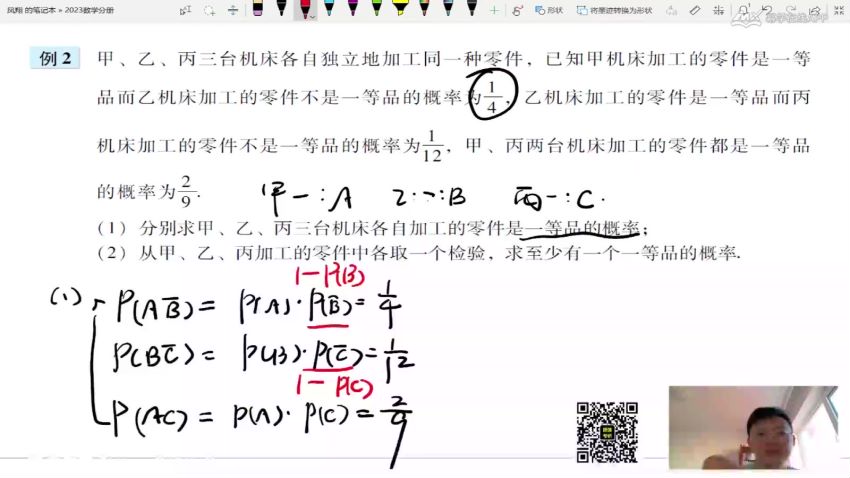 凤翔 的笔记本 » 2023数学分册
形状
将墨迹转换为形状
例 2 甲、乙、丙三台机床各自独立地加工同一种零件，已知甲机床加工的零件是一等
品而乙机床加工的零件不是一等品的概率为1/4，乙机床加工的零件是一等品而丙
机床加工的零件不是一等品的概率为1/12，甲、丙两台机床加工的零件都是一等品
的概率为2/9.
甲一:A 乙一:B 丙一:C.
(1) 分别求甲、乙、丙三台机床各自加工的零件是一等品的概率;
(2) 从甲、乙、丙加工的零件中各取一个检验，求至少有一个一等品的概率.
1-P(B)
(1) P(AB̄) = P(A)·P(B̄) = 1/4
P(BC̄) = P(B)·P(C̄) = 1/12
1-P(C)
P(AC) = P(A)·P(C) = 2/9